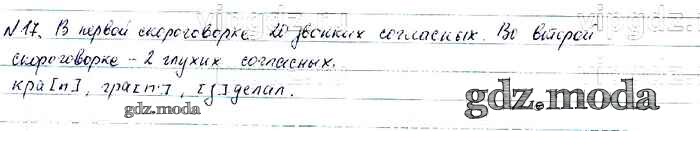 N17. В первой скороговорке 20 звонких согласных. Во второй
скороговорке - 2 глухих согласных.
кра[п], гра[п'], [з]делал.
gdz.moda
gdz.moda